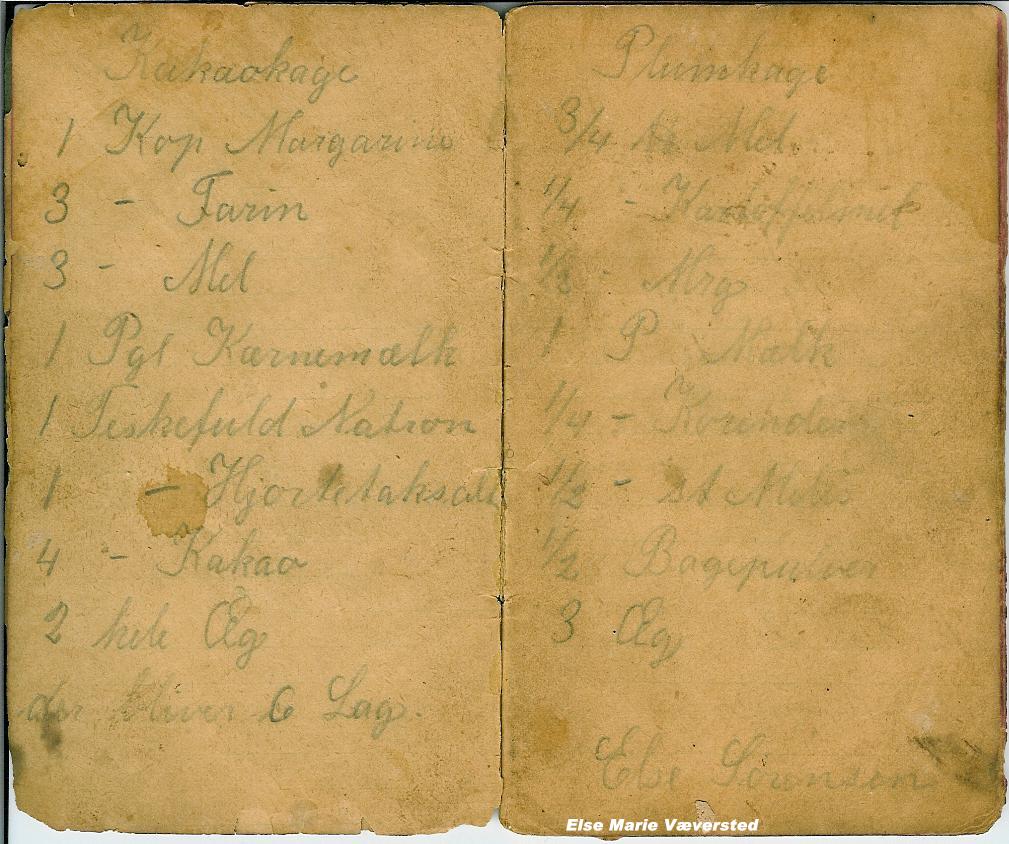 Kakaokage
1 Kop Margarine
3 - Farin
3 - Mel
1 Pgl Kærnemælk
1 Teskefuld Natron
1 - Hjortetaksalt
4 - Kakao
2 hele Æg
der bliver 6 Lag.
Plumkage
3/4 Mel
1/4 - Kartoffelmel
1/2 - Mrg
1 P Mælk
1/4 - Korender
1/2 - st Melis
1/2 Bagepulver
3 Æg
Else Sørensen
Else Marie Væversted